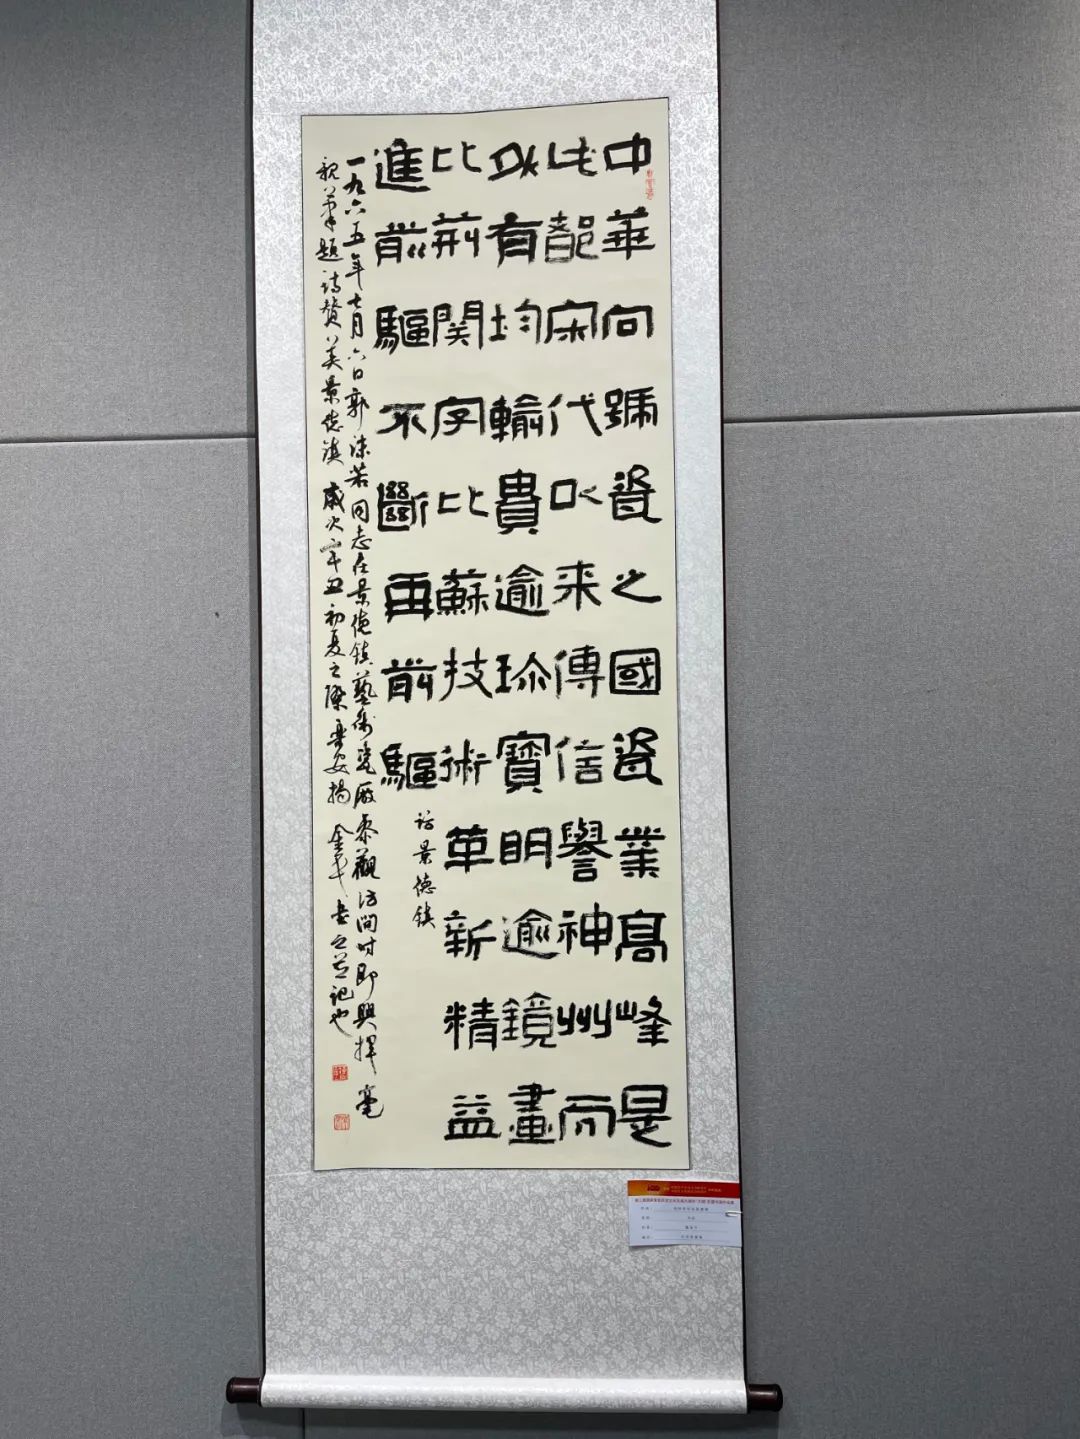 中華向號瓷之國瓷業高峰是
此都宋代以来傳信譽神州而
外有均輸貴逾珎寶明逾鏡畫
比荆関字比蘇技術革新精益
進前驅不斷再前驅
訪景德鎮
一九六五年七月六日郭沫若同志在景德鎮藝術瓷廠參觀訪問时即興揮毫
親筆題詩贊美景德鎮歲次辛丑初夏之際書之並記也